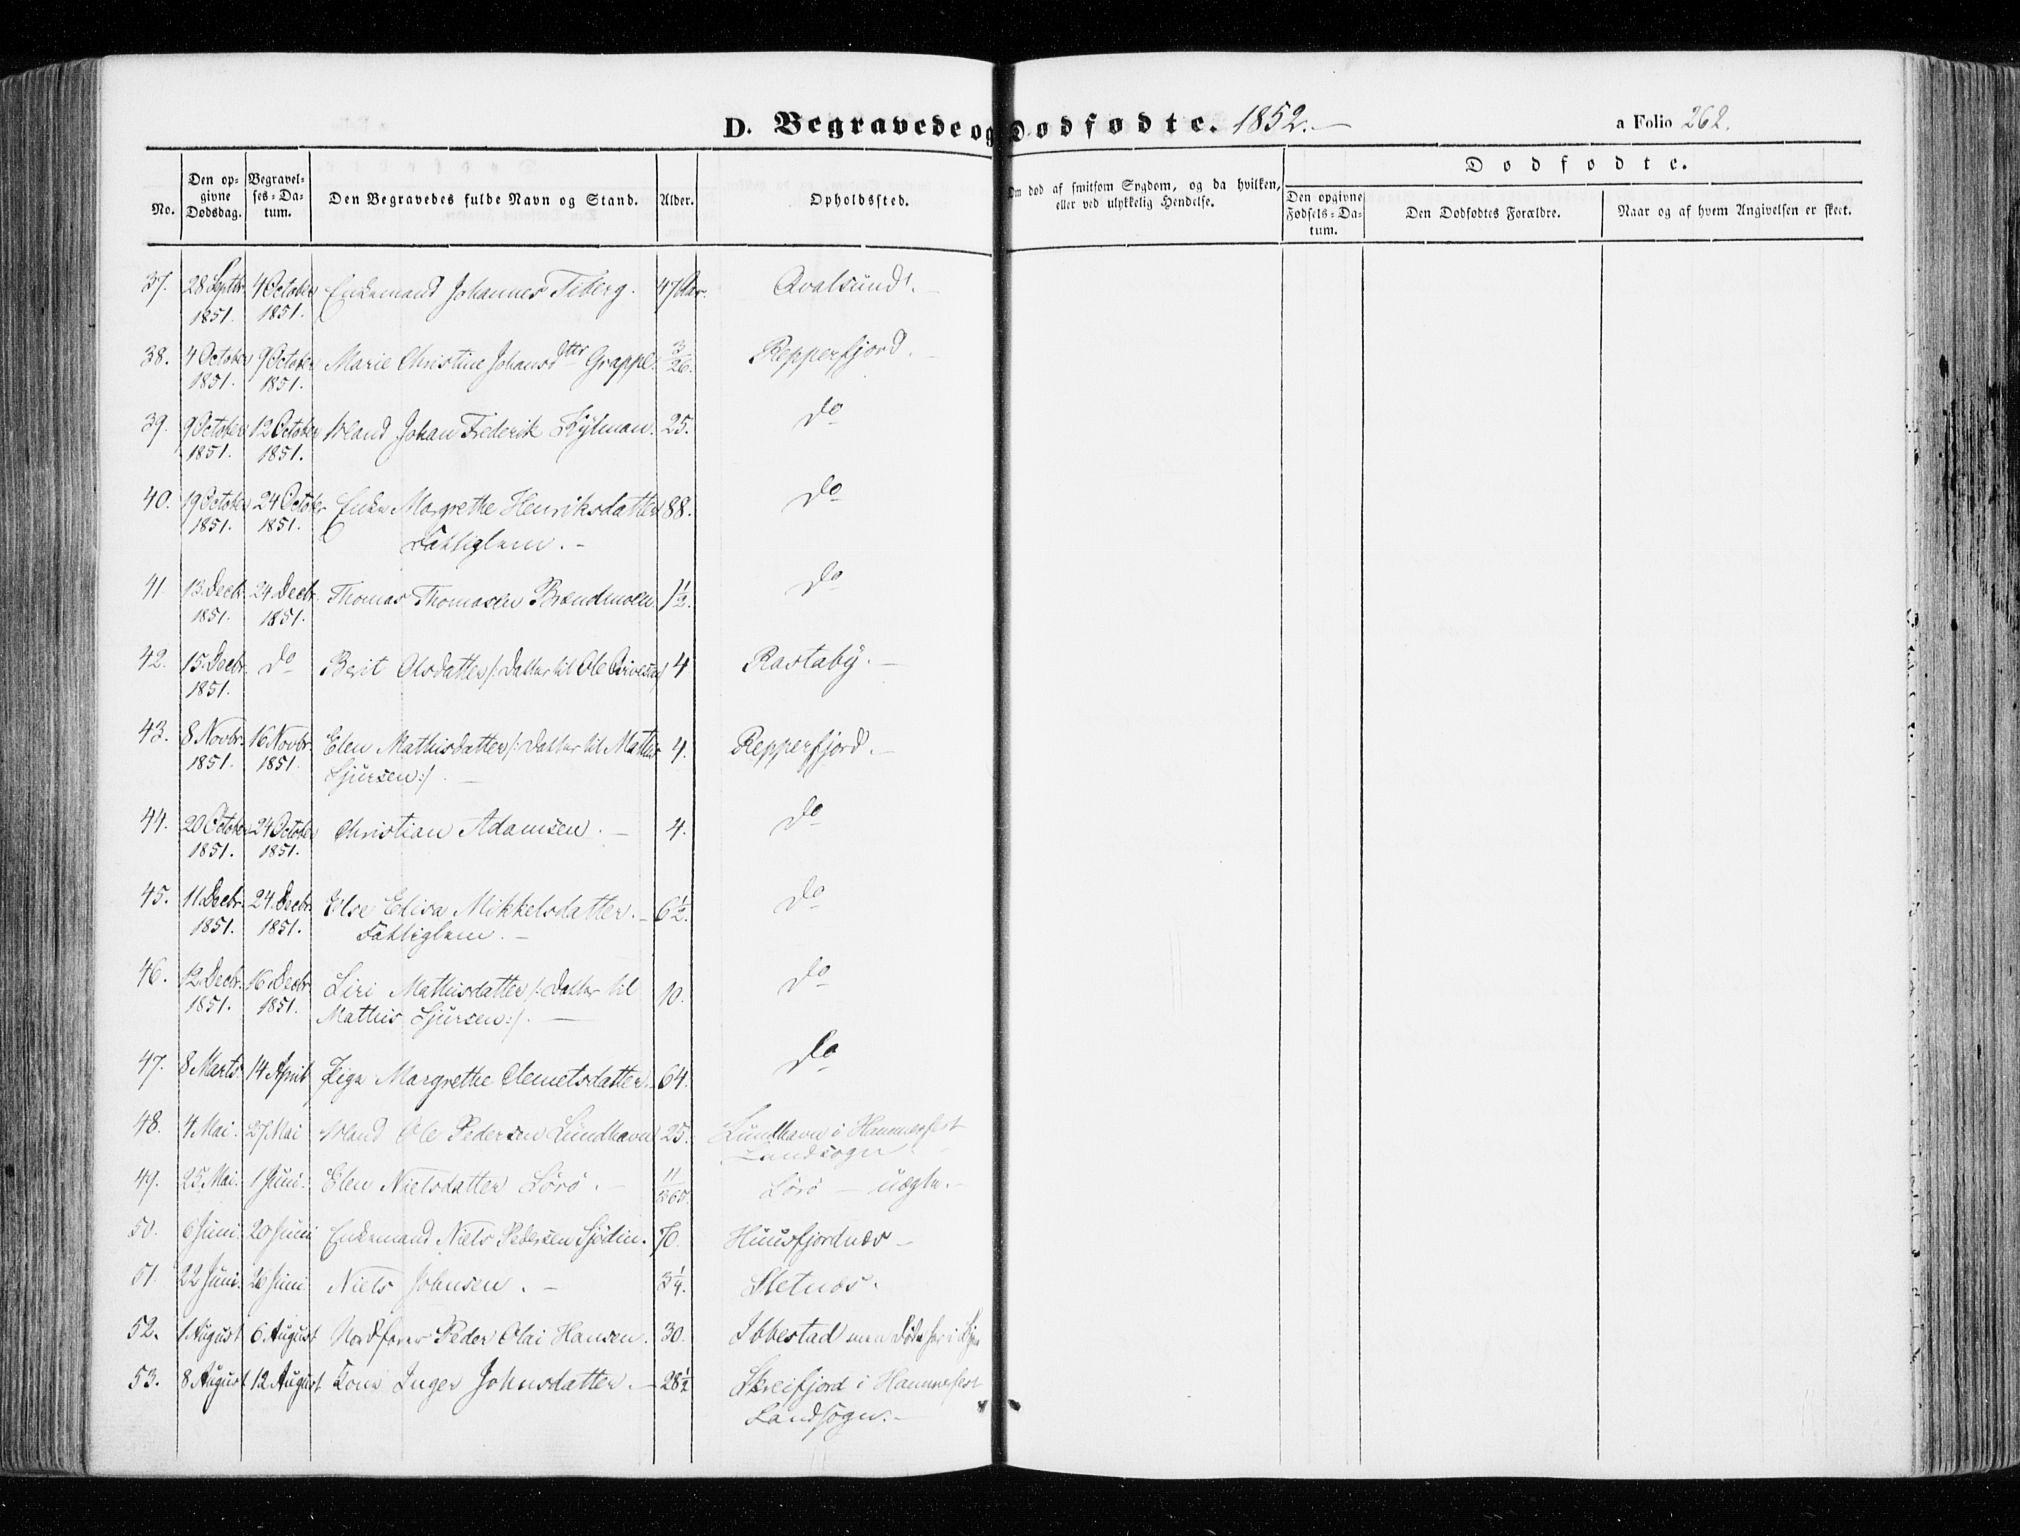 D. Begravede og Dødfødte. 1852.
a Folio 262.
No.
Den opgivne Dødsdag.
Begravelses-Datum.
Den Begravedes fulde Navn og Stand.
Alder.
Opholdssted.
Om død af smitsom Sygdom, og da hvilken, eller ved ulykkelig Hendelse.
Dødfødte.
Den opgivne Fødsels-Datum.
Den Dødfødtes Forældre.
Naar og af hvem Angivelsen er skeet.
37. 28 Septbr. 4 October Enkemand Johannes Fiberg. 47 Aar. Qvalsund.
1851. 1851.
38. 4 October 9 October Marie Christine Johansdttr Grappe. 3/26. Repperfjord.
1851. 1851.
39. 9 October 12 October Mand Johan Frederik Kylman. 25. Do
1851. 1851.
40. 19 October 24 October Enke Margrethe Henriksdatter 88. Do
1851. 1851. Fattiglem.
41. 13. Decbr. 24. Decbr. Thomas Thomasen Brendmoen. 1½. Do
1851. 1851.
42. 15. Decbr. Do Berit Olsdatter /: Datter til Ole 4 Rastaby.
1851.
43. 8 Novbr. 16 Novbr. Elen Mathisdatter /: Datter til Mathis 4. Repperfjord.
1851. 1851. Sjursen :/.
44. 20 October 24 October Christian Adamsen. 4. Do
1851. 1851.
45. 11 Decbr. 24. Decbr. Else Elisa Mikkelsdatter. 6½. Do
1851. 1851. Fattiglem.
46. 12. Decbr. 16. Decbr. Siri Mathisdatter /: Datter til 10. Do
1851. 1851. Mathis Sjursen :/.
47. 8 Marts 14 April Pige Margrethe Clemetsdatter. 64. Do
48. 4 Mai. 27 Mai Mand Ole Pedersen Lundhavn 25. Lundhavn i Hammerfest
Landsogn.
49. 25. Mai. 1 Juni. Elen Nielsdatter Lørø. 11/360. Lørø — uægte.
50. 6 Juni. 20 Juni Enkemand Niels Pedersen Sjødin. 70. Huusfjordnæs
51. 22 Juni. 26 Juni Niels Johnsen. 3¼. Sletnæs.
52. 1 August 6. August Nordfarer Peder Olai Hansen. 30. Ibbestad men døde her i
53. 8 August 12 August Kone Inger Johnsdatter. 28½ Skreifjord i Hammerfest
Landsogn.